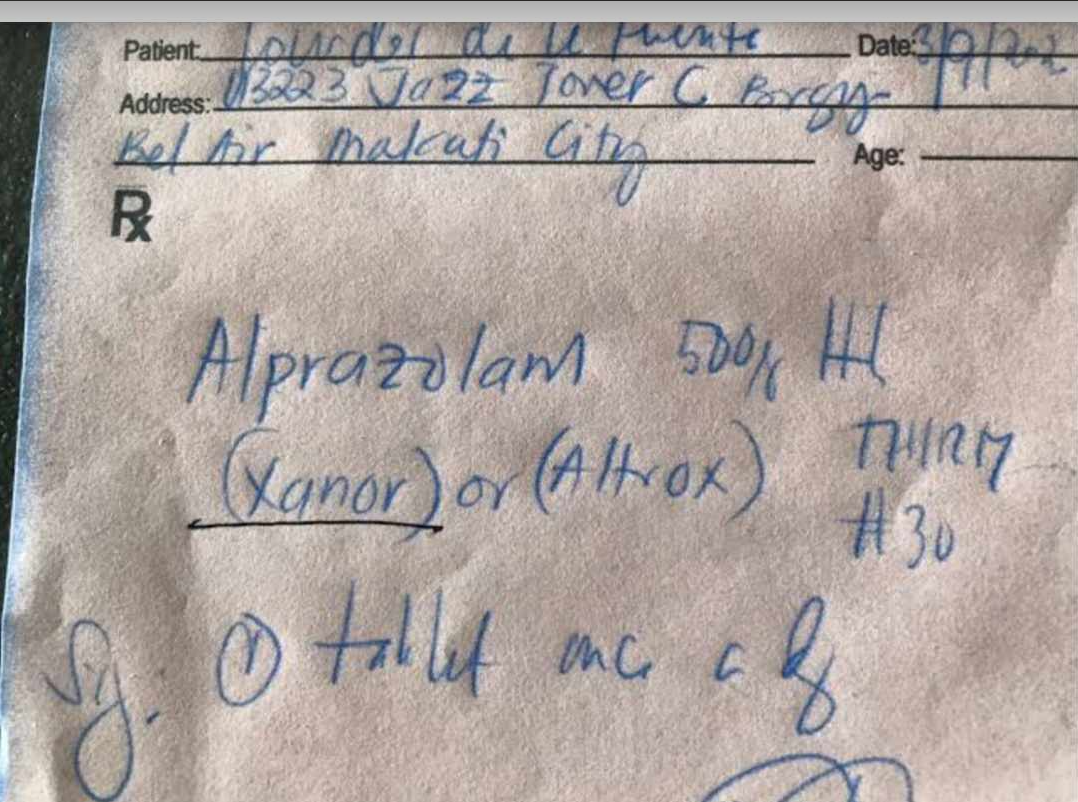 Patient: Lourdes de la Fuente Date: 3/9/202
Address: #3223 Jazz Tower C Brgy
Bel Air Makati City Age:
Rx
Alprazolam 500
(Xanor) or (Altrox) THIRTY
#30
Sig. 1 tablet once a